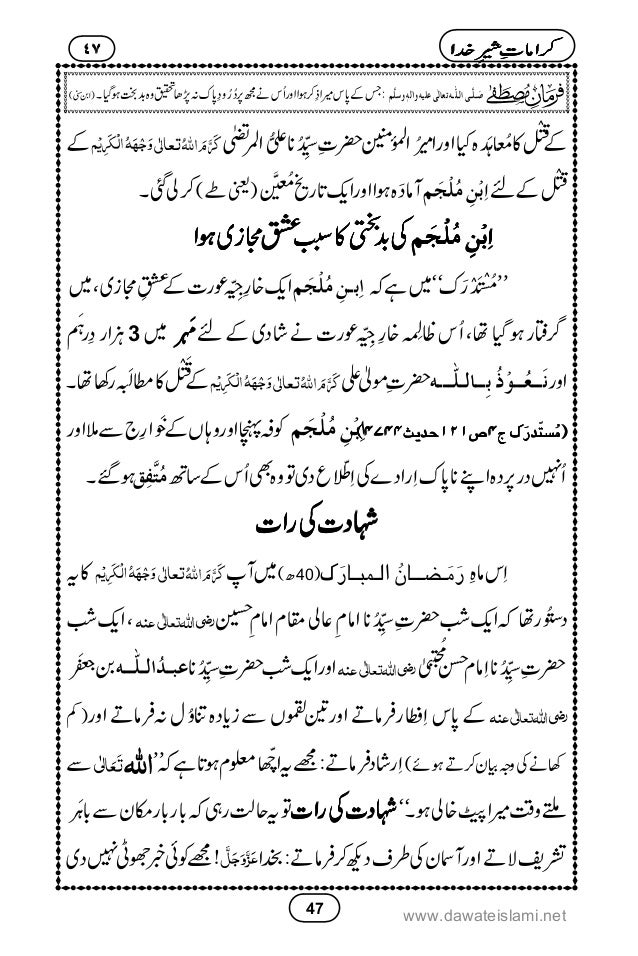 کراماتِ شیرِ خدا
۴۷
فرمانِ مصطفٰے صلی اللہ تعالی علیہ والہ وسلم : جس کے پاس میرا ذِکر ہوا اور اُس نے مجھ پر دُرُودِ پاک نہ پڑھا تحقیق وہ بد بخت ہوگیا۔ (ابن سنی)
کے قتل کا مُعاہَدہ کیا اور امیرُ المؤمنین حضرتِ سیِّدُنا علیُّ المرتضٰی کَرَّمَ اللہُ تعالٰی وَجْہَہُ الْکَرِیْم کے
قتل کے لئے اِبْنِ مُلْجَم آمادَہ ہوا اور ایک تاریخ مُعیَّن (یعنی طے) کر لی گئی۔
اِبْنِ مُلْجَم کی بدبختی کا سبب عشقِ مجازی ہوا
’’مُسْتَدْرَک‘‘ میں ہے کہ اِبنِ مُلْجَم ایک خارِجِیّہ عورت کے عشقِ مجازی، میں
گرفتار ہوگیا تھا، اُس ظالِمہ خارِجِیّہ عورت نے شادی کے لئے مَہْر میں 3 ہزار دِرہَم
اور نَعُوْذُ بِاللّٰہ حضرتِ مولیٰ علی کَرَّمَ اللہُ تعالٰی وَجْہَہُ الْکَرِیْم کے قَتْل کا مطالَبہ رکھا تھا۔
(مُستَدرَک ج۴ص۱۲۱حدیث۴۷۴۴) اِبْنِ مُلْجَم کوفہ پہنچا اور وہاں کے خَوارِج سے ملا اور
اُنہیں درپردہ اپنے ناپاک اِرادے کی اِطِّلاع دی تو وہ بھی اُس کے ساتھ مُتَّفِق ہوگئے۔
شہادت کی رات
اِس ماہِ رَمَضانُ المبارَک (40ھ) میں آپ کَرَّمَ اللہُ تعالٰی وَجْہَہُ الْکَرِیْم کا یہ
دستُور تھا کہ ایک شب حضرتِ سیِّدُنا امامِ عالی مقام امام حسین رضی اللہ تعالٰی عنہ، ایک شب
حضرتِ سیِّدُنا اِمام حسن مُجتبیٰ رضی اللہ تعالٰی عنہ اور ایک شب حضرتِ سیِّدُنا عبدُاللّٰہ بن جعفر
رضی اللہ تعالٰی عنہ کے پاس اِفطار فرماتے اور تین لقموں سے زیادہ تناوُل نہ فرماتے اور (کم
کھانے کی وجہ بیان کرتے ہوئے) اِرشاد فرماتے: مجھے یہ اچھا معلوم ہوتا ہے کہ ’’اللّٰہ تَعَالٰی سے
ملتے وقت میرا پیٹ خالی ہو۔‘‘ شہادت کی رات تو یہ حالت رہی کہ بار بار مکان سے باہَر
تشریف لاتے اور آسمان کی طرف دیکھ کر فرماتے: بخدا عَزَّوَجَلَّ! مجھے کوئی خبر جھوٹی نہیں دی
47
www.dawateislami.net